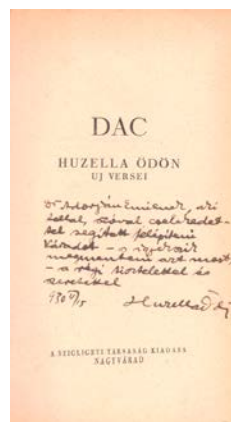 DAC
HUZELLA ÖDÖN
UJ VERSEI
Dr Adorján Emilnek, aki
tollal, szóval cselekedet-
tel segített felépíteni
Váradot - s igyekszik
megmenteni azt most,
- a régi tisztelettel és
szeretettel
Huzella Ödön
A SZIGLIGETI TÁRSASÁG KIADÁSA
NAGYVÁRAD